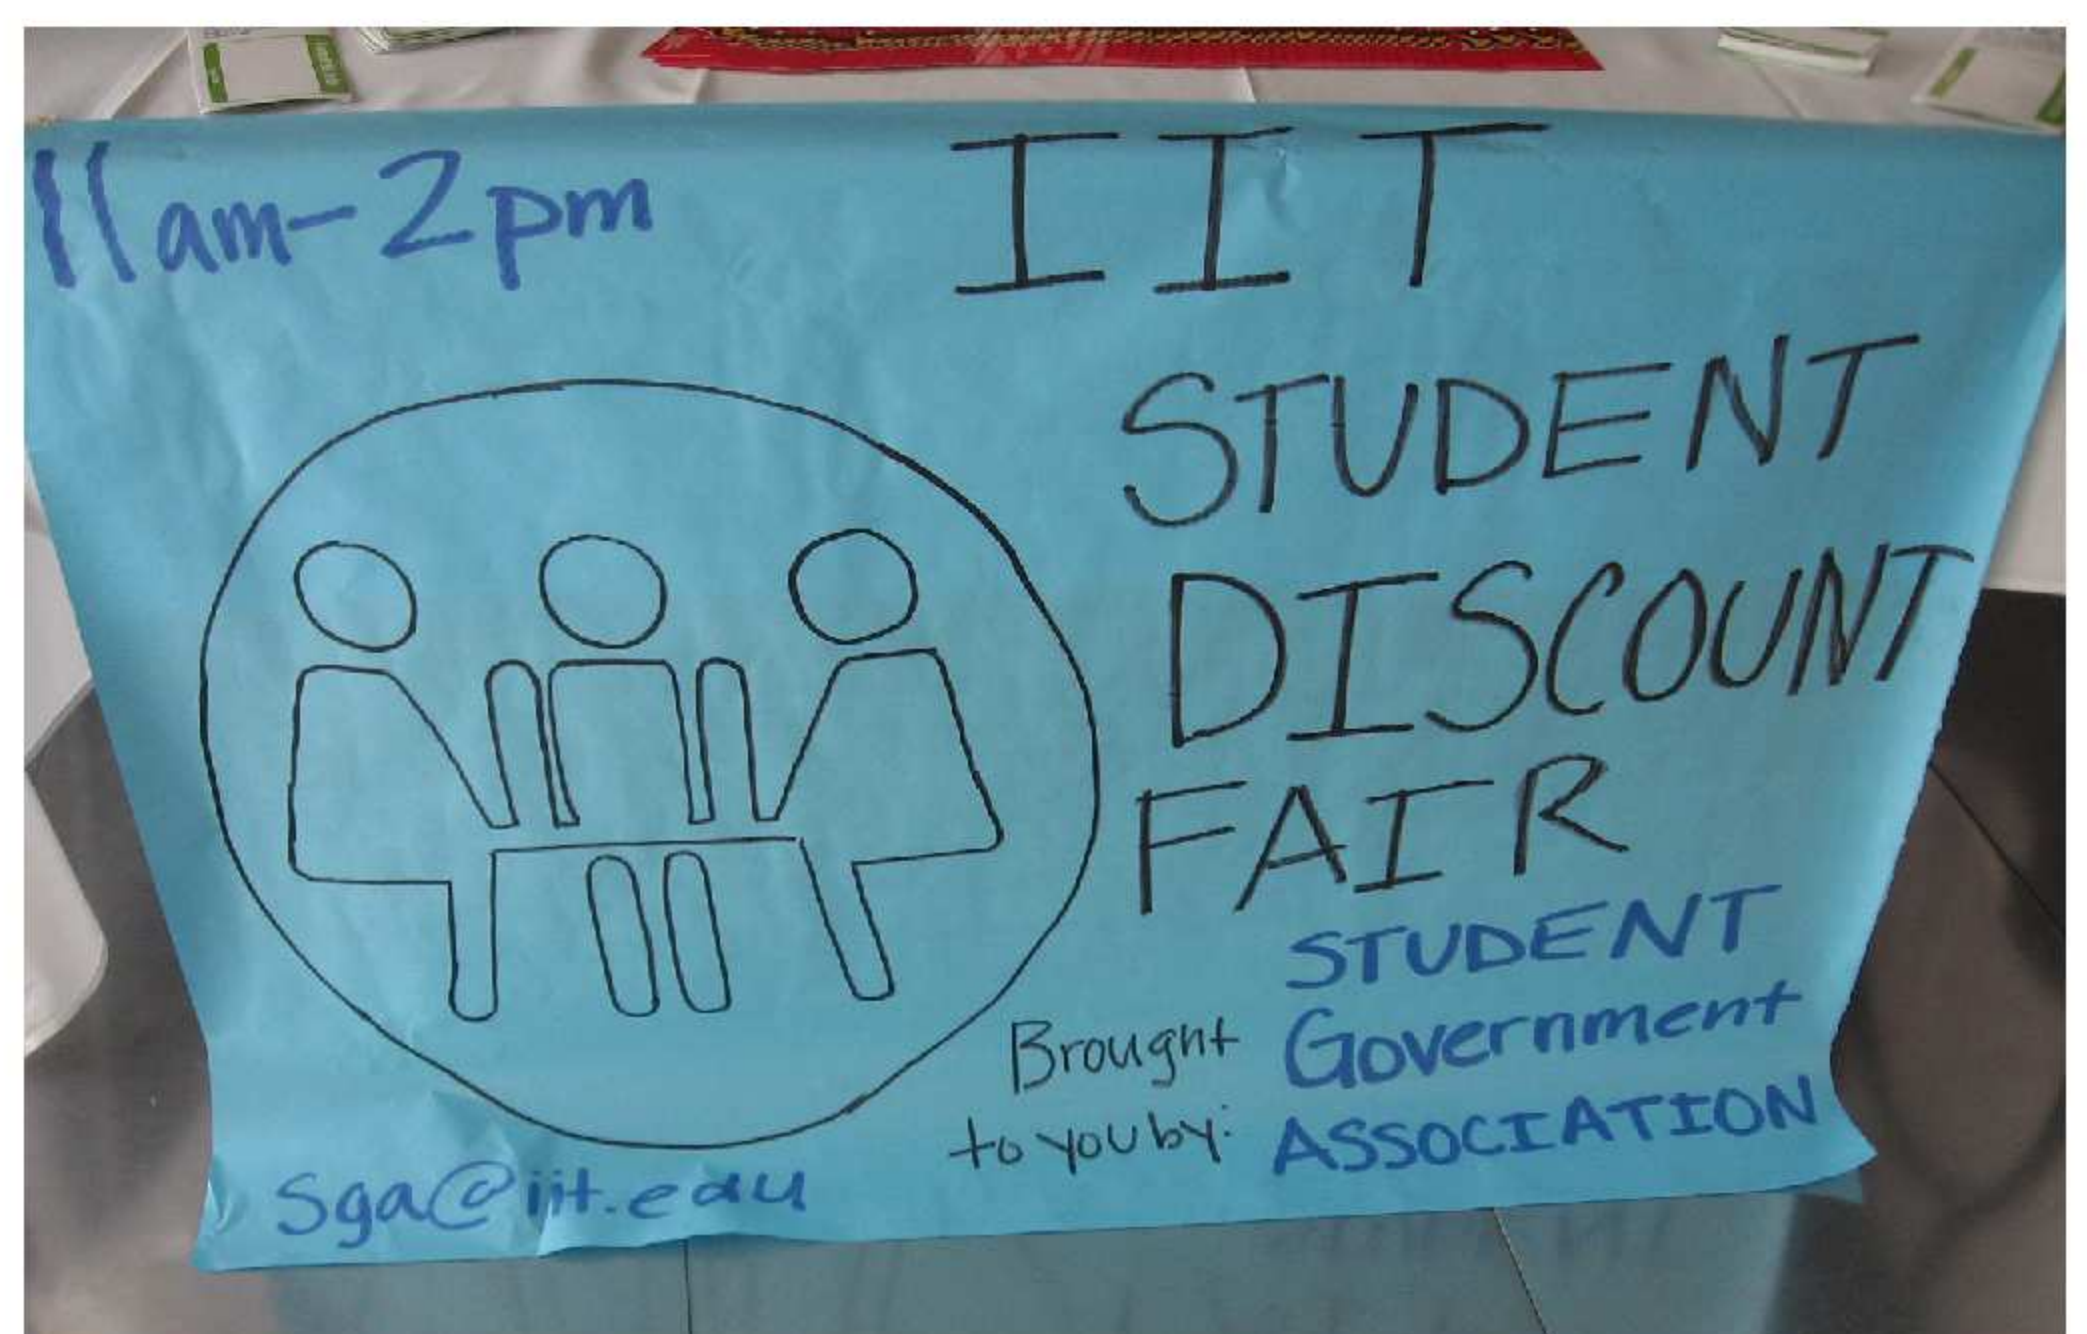 11am-2pm
IIT
STUDENT
DISCOUNT
FAIR
Brought
to you by:
STUDENT
Government
ASSOCIATION
sga@iit.edu